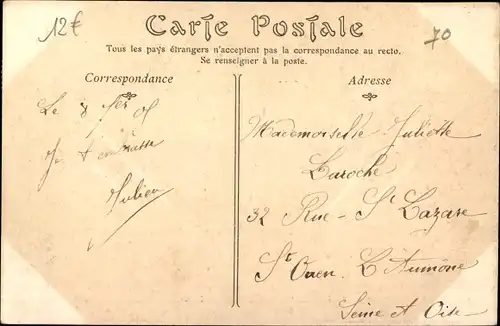 12€
70
Carte Postale
Tous les pays étrangers n'acceptent pas la correspondance au recto.
Se renseigner à la poste.
Correspondance
Adresse
Le 8
Je t'embrasse
Julien
Mademoiselle Juliette
Laroche
32 Rue St Lazare
St Ouen L'Aumône
Seine et Oise